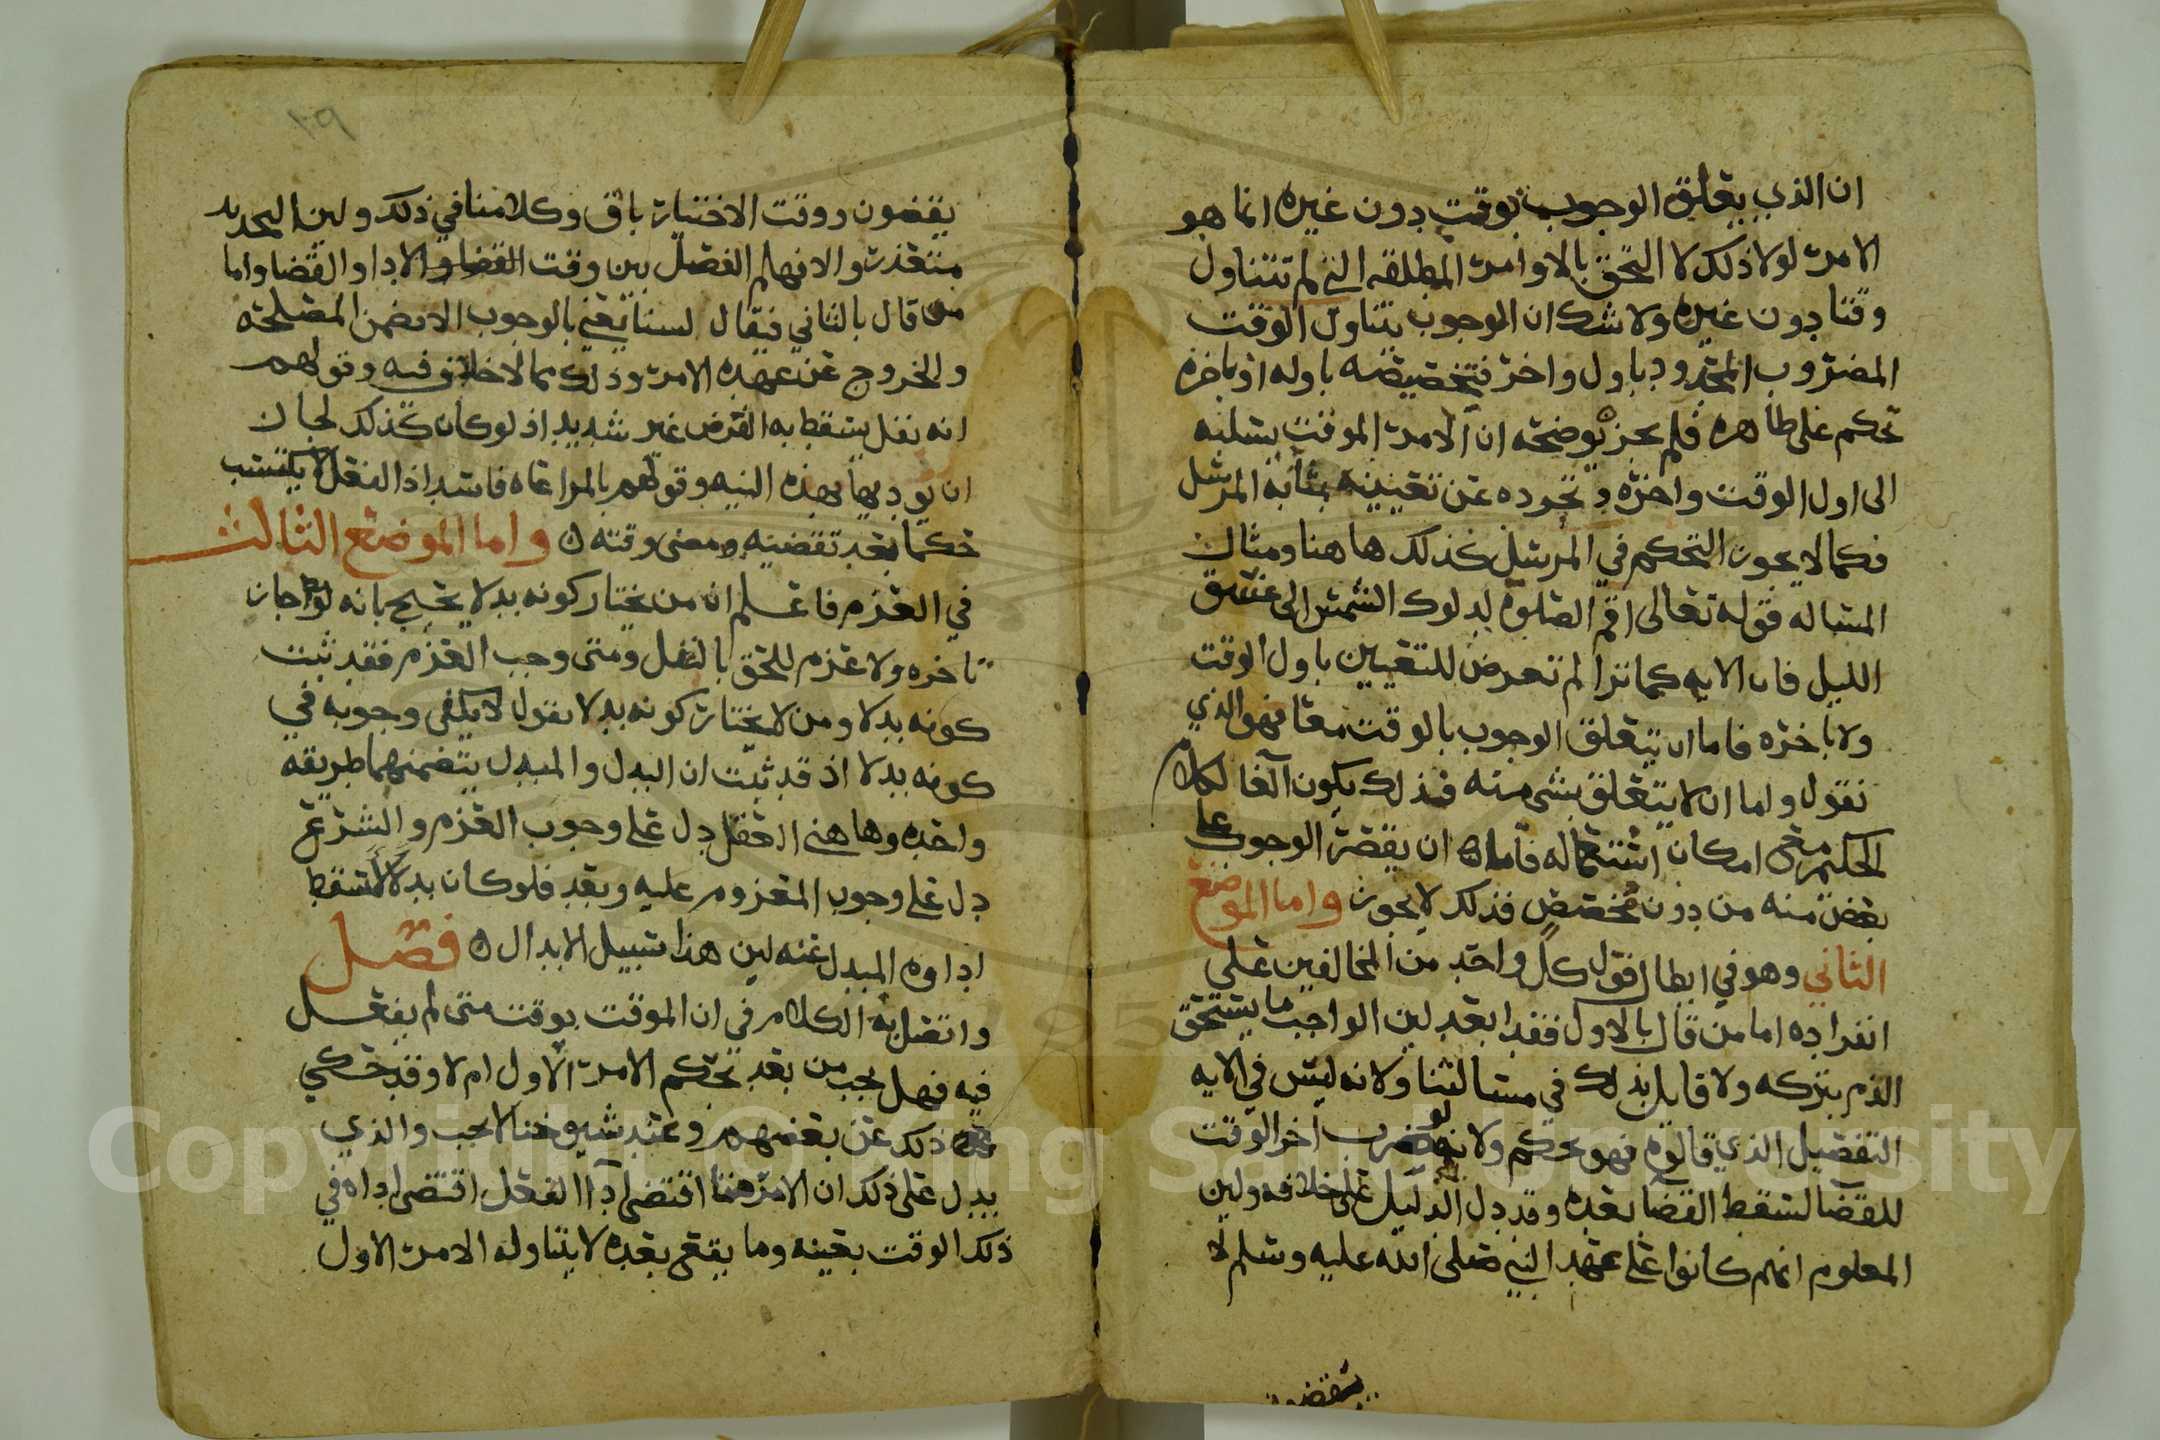 ان الذي يعلق الوجوب بوقت دون غيره انما هو
الامر لولا ذلك لا التحق بالاوامر المطلقه التي لم تتناول
وقتا دون غيره ولا شك ان الوجوب يتناول الوقت
المضروب المحدود باول واخر فتخصيصه باوله او باخره
تحكم على ظاهره فلم يجز يوضحه ان الامر الموقت بنسبته
الى اول الوقت واخره وتجرده عن تعيينه بمثابة المرسل
فكما لا يجوز التحكم في المرسل كذلك هاهنا ومثال
المساله قوله تعالى اقم الصلوة لدلوك الشمس الى غسق
الليل فان الايه كما ترا لم تعرض للتعيين باول الوقت
ولا باخره فاما ان يتعلق الوجوب بالوقت معا فهو الذي
نقول واما ان لا يتعلق بشي منه فذلك يكون الغا لكلام
الحكيم مع امكان استعماله فاما ان يقصر الوجوب على
بعض منه من دون مخصص فذلك لا يجوز واما الموضع
الثاني وهو في ابطال قول كل واحد من المخالفين على
انفراده اما من قال بالاول فقد ابعد لين الواجب ما يستحق
الذم بتركه ولا قايل بذلك في مسالتنا ولانه ليس في الايه
التفصيل الذي قالوه فهو تحكم ولانه لو ضرب اخر الوقت
للقضا لسقط القضا بعده وقد دل الدليل على خلافه ولين
المعلوم انهم كانوا على عهد النبي صلى الله عليه وسلم لا
يقضون
٢٩
يقضون ووقت الاختيار باق وكلامنا في ذلك ولين التحديد
متعذر والا فهلم الفصل بين وقت الادا والقضا واما
من قال بالثاني فيقال لسنا نعني بالوجوب الا تضمن المصلحه
والخروج عن عهده الامر وذلك مما لا خلاف فيه وقولهم
انه نفل يسقط به الفرض غير شديد اذ لو كان كذلك لجاز
ان يوديها بهذه النيه وقولهم بالمراعاه فاسد اذ الفعل لا يكتسب
حكما بعد تقضيه ومضى وقته ه واما الموضع الثالث
في العزم فاعلم ان من يختار كونه بدلا يحتج بانه لو جاز
تاخره ولا عزم للحق بالنفل ومتى وجب العزم فقد ثبت
كونه بدلا ومن لا يختار كونه بدلا يقول لا يكفى وجوبه في
كونه بدلا اذ قد ثبت ان البدل والمبدل يتضمنهما طريقه
واحده وهاهني العقل دل على وجوب العزم والشرع
دل على وجوب المعزوم عليه وبعد فلو كان بدلا لاسقط
اداوه المبدل عنه لين هذا سبيل الابدال ه فصل
واتصل به الكلام في ان الموقت بوقت متى لم يفعل
فيه فهل يجب من بعد بحكم الامر الاول ام لا وقد حكي
ذلك عن بعضهم وعند شيوخنا لا يجب والذي
يدل على ذلك ان الامر هنا اقتضى ادا الفعل اقتضى اداه في
ذلك الوقت بعينه وما يقع بعده لا يتناوله الامر الاول
Copyright © King Saud University